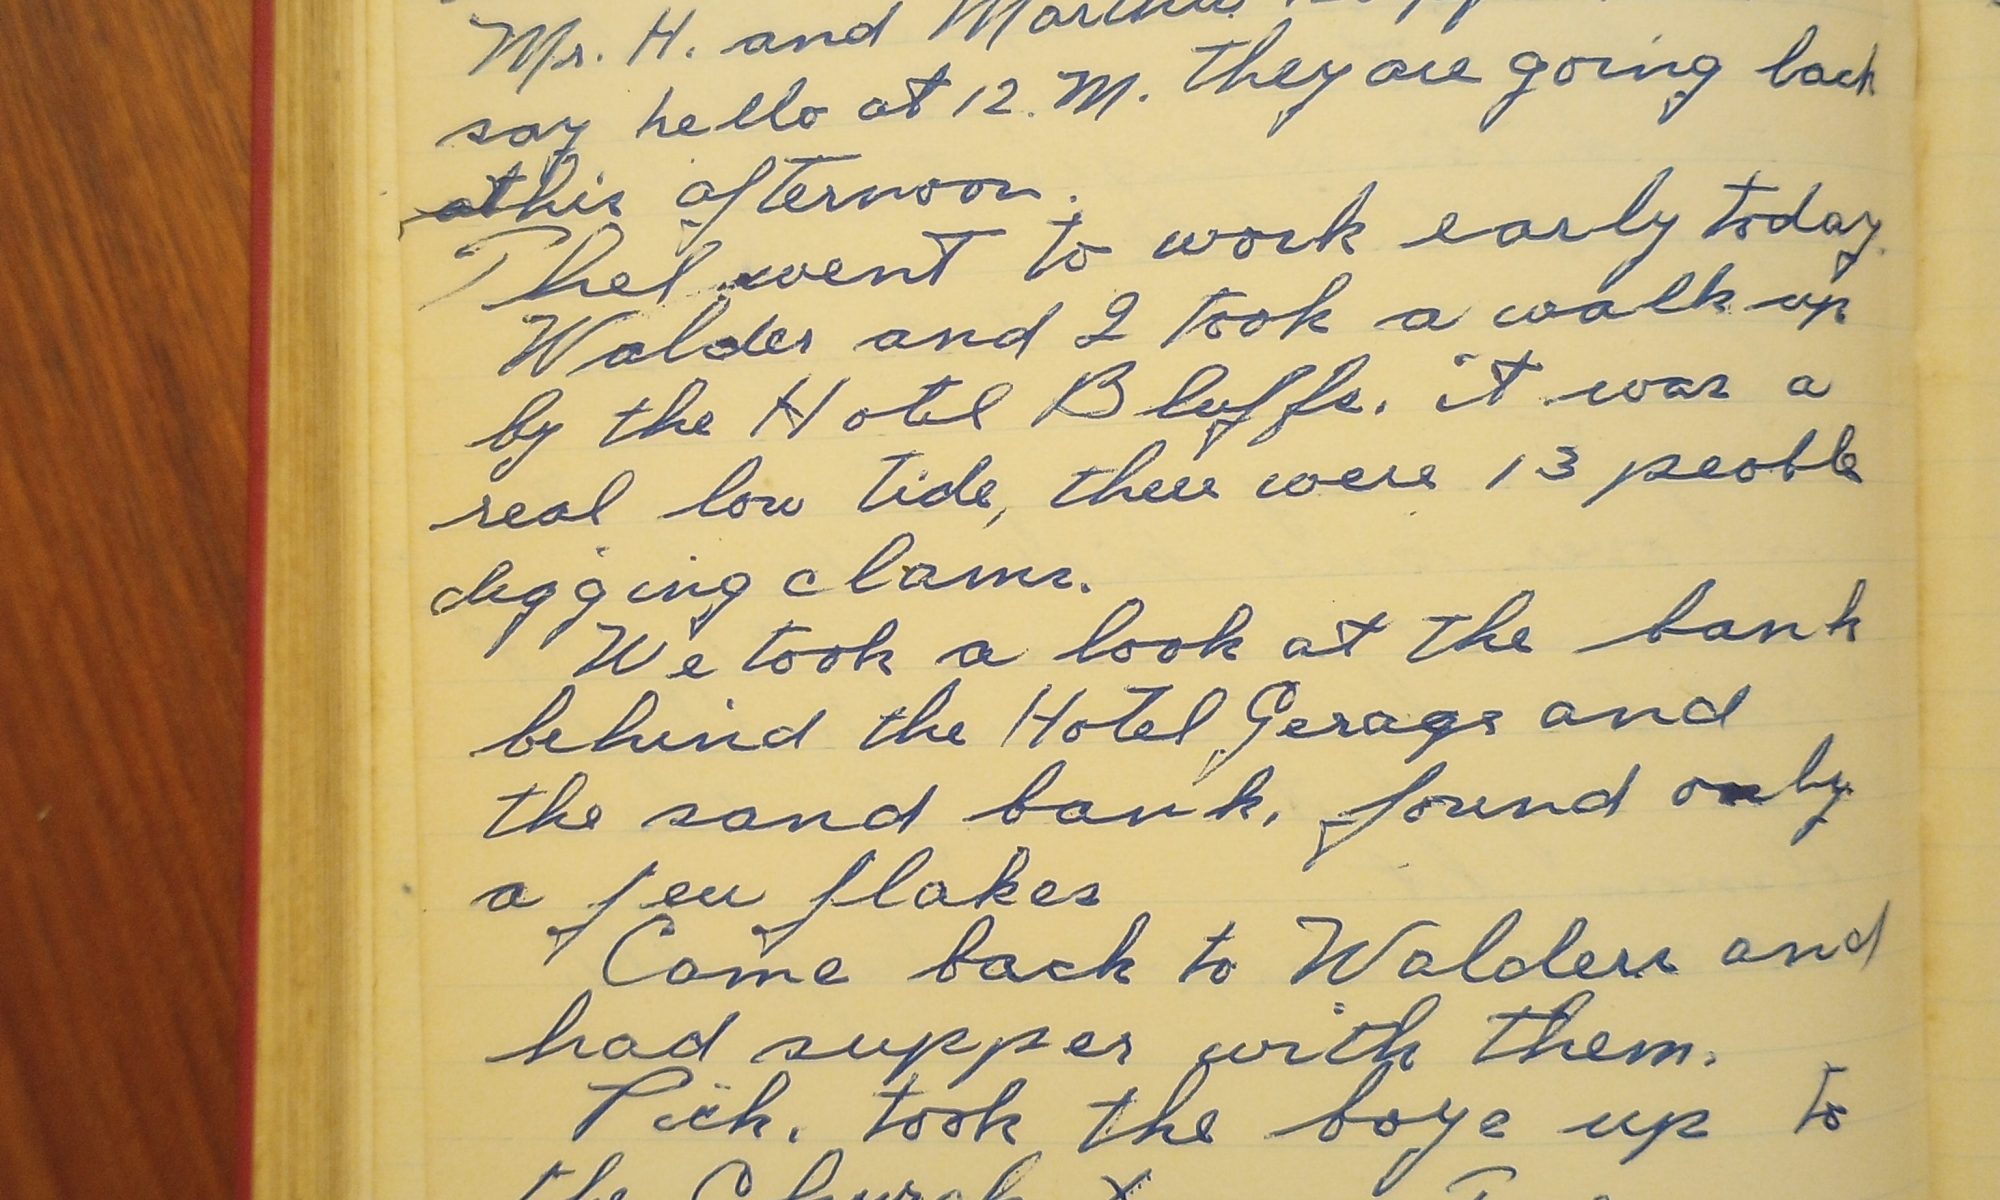 Mr. H. and Martha
say hello at 12. M. they are going back
this afternoon.
Thel went to work early today.
Walder and I took a walk up
by the Hotel Bluffs. it was a
real low tide, there were 13 peoble
digging clams.
We took a look at the bank
behind the Hotel Gerage and
the sand bank, found only
a few flakes
Came back to Walders and
had supper with them.
Pick. took the boys up to
the Church